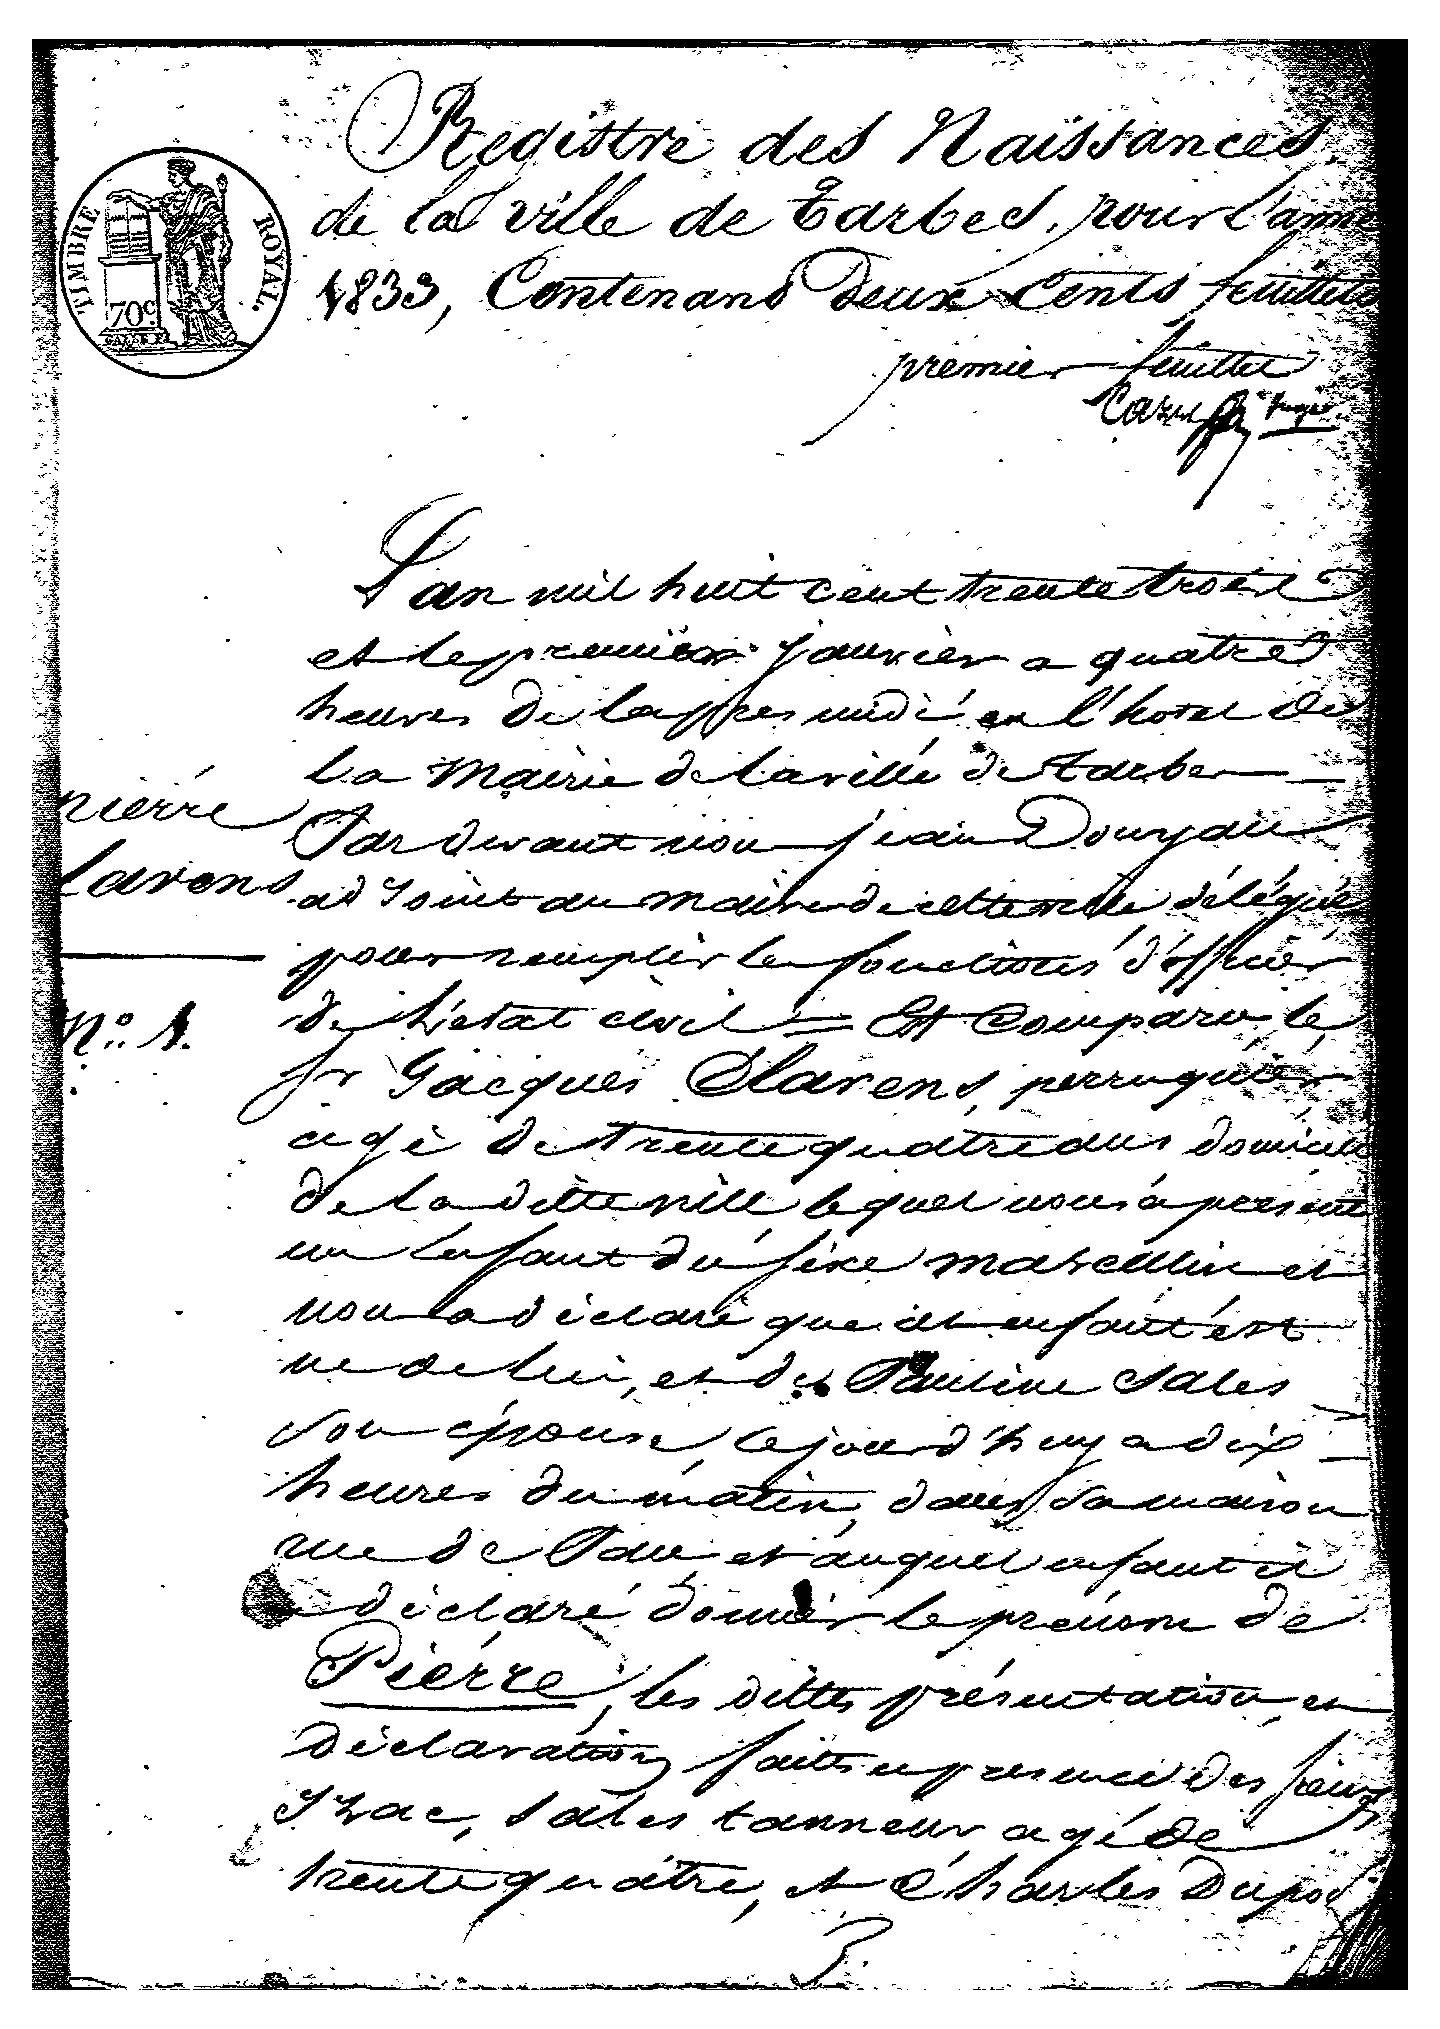 Registre des Naissances,
de la ville de Tarbes, pour l'année
1833, Contenand deux cents feuillets
premier feuillet
TIMBRE ROYAL.
709
L'an mil huit cent trente trois
et le premier janvier a quatre
heures de lapres midi en l'hotel de
la Mairie de la ville de Tarbes
Par devant nous jean
adjoint au maire de cette ville délégué
pour remplir les fonctions d'officier
de l'état civil = Est Comparu le
Sr Jacques Clarens, perruquier
agé de trente quatre ans domicilié
de la ditte ville lequel nous à présenté
un Enfant du sexe masculin et
nous a déclaré que cet enfant est
né de lui, et de Pauline Sales
son épouse, cejourd'huy a dix
heures du matin, dans sa maison
rue de Pau et auquel enfant il
a déclaré donner le prénom de
Pierre, les dittes présentation, et
déclaration faites en presence des sieurs
Izac, Sales tanneur agé de
trente quatre, et Charles
Pierre
Clarens
No. 1.